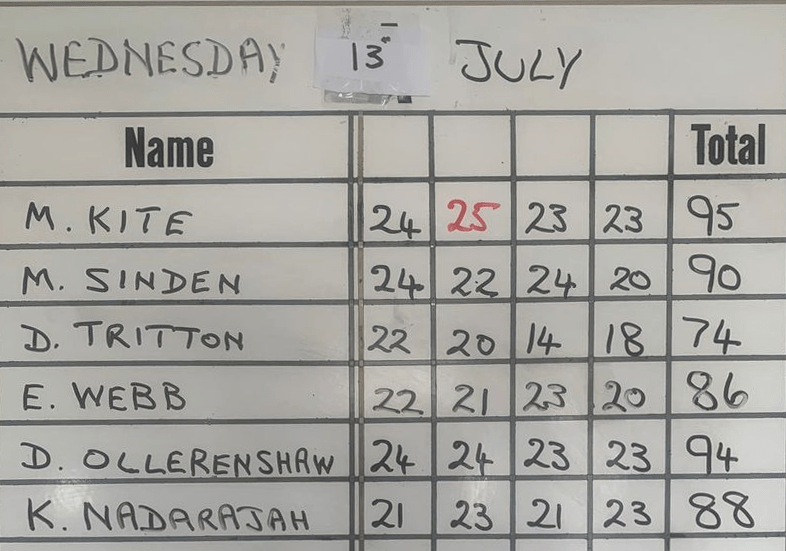 WEDNESDAY 13 JULY
Name Total
M. KITE 24 25 23 23 95
M. SINDEN 24 22 24 20 90
D. TRITTON 22 20 14 18 74
E. WEBB 22 21 23 20 86
D. OLLERENSHAW 24 24 23 23 94
K. NADARAJAH 21 23 21 23 88